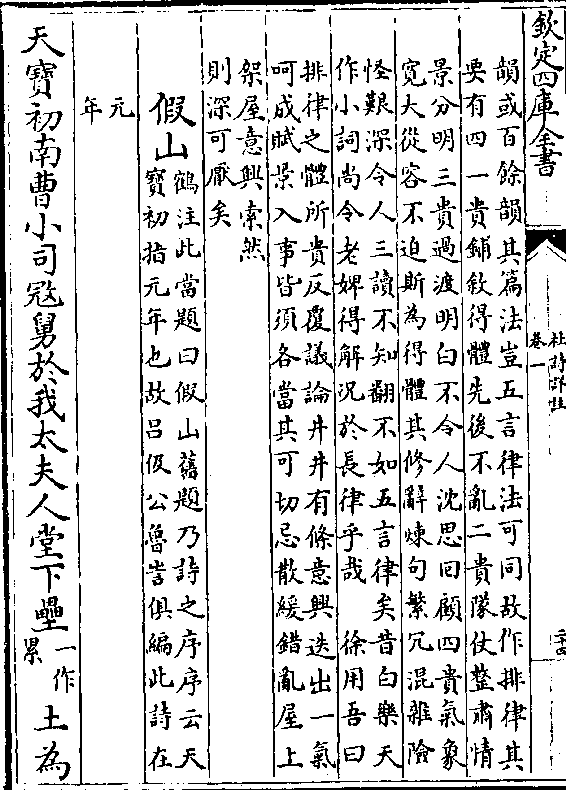 欽定四庫全書
杜詩詳註
卷一
二十四
韻或百餘韻其篇法豈五言律法可同故作排律其
要有四一貴鋪敘得體先後不亂二貴隊仗整肅情
景分明三貴過渡明白不令人沈思回顧四貴氣象
寬大從容不迫斯為得體其修辭煉句繁冗混雜險
怪艱深令人三讀不知翻不如五言律矣昔白樂天
作小詞尚令老婢得解況於長律乎哉　徐用吾曰
排律之體所貴反覆議論井井有條意興迭出一氣
呵成賦景入事皆須各當其可切忌散緩錯亂屋上
架屋意興索然
則深可厭矣
假山
鶴注此當題曰假山舊題乃詩之序序云天
寶初指元年也故呂伋公魯訔俱編此詩在
元
年
天寶初南曹小司寇舅於我太夫人堂下壘一作累土為